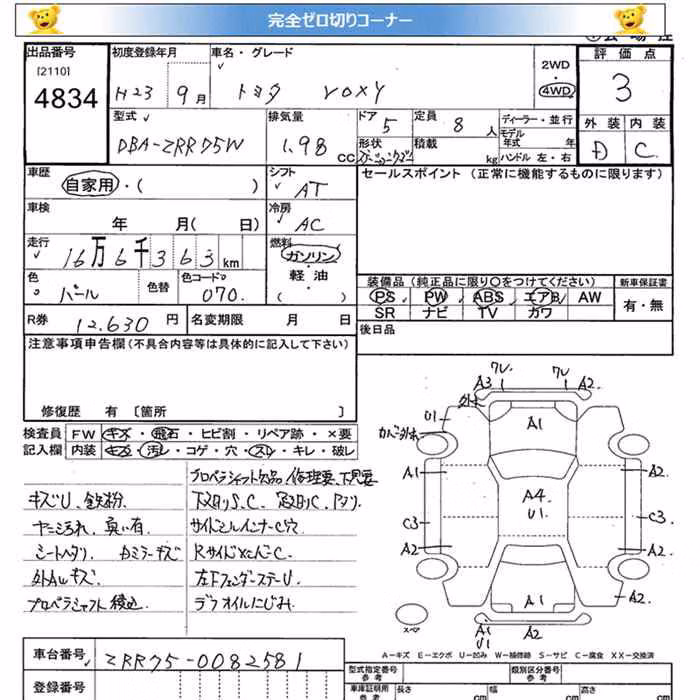 完全ゼロ切りコーナー
出品番号
[2110]
4834
初度登録年月
H23 9月
車名・グレード
トヨタ VOXY
2WD
・
4WD
評価点
3
外装 内装
D C
型式
DBA-ZRR75W
排気量
1.98 CC
ドア 5
形状
定員 8人
積載 kg
ディーラー・並行
モデル年式 年
ハンドル 左・右
車歴
自家用・( )
シフト
AT
セールスポイント (正常に機能するものに限ります)
車検
年 月(日)
冷房
AC
走行
16万6千363km
燃料
ガソリン
軽・油
( )
色
パール
色替
色コードNo
070
装備品(純正品に限り○をつけてください)
PS PW ABS エアB AW
SR ナビ TV カワ
新車保証書
有・無
R券 12,630円
名変期限 月 日
後日品
注意事項申告欄(不具合内容等は具体的に記入して下さい)
修復歴 有〔箇所 〕
検査員記入欄
FW キズ・飛石・ヒビ割・リペア跡・×要
内装 キズ・汚レ・コゲ・穴・スレ・キレ・破レ
プロペラシャフト欠品 修理要、下見要
キズU、鉄粉
ヤニ汚れ、臭い有
シートヘタリ、
外AWキズ
プロペラシャフト積込
下廻りS、C
サイドシルインナーC穴
左Fフェンダーステー U
デフオイルにじみ
A3 ワレ ワレ A2
U1
A1
A1 A2
A4
U1
C3 C3
A2 A2
A1 A2
スペア
A1
U1
A2
A-キズ E-エクボ U-凹み W-補修跡 S-サビ C-腐食 XX-交換済
車台番号
ZRR75-0082581
登録番号
型式指定番号
参考
類別区分番号
参考
車庫証明用
参考
長さ cm
幅 cm
高さ cm